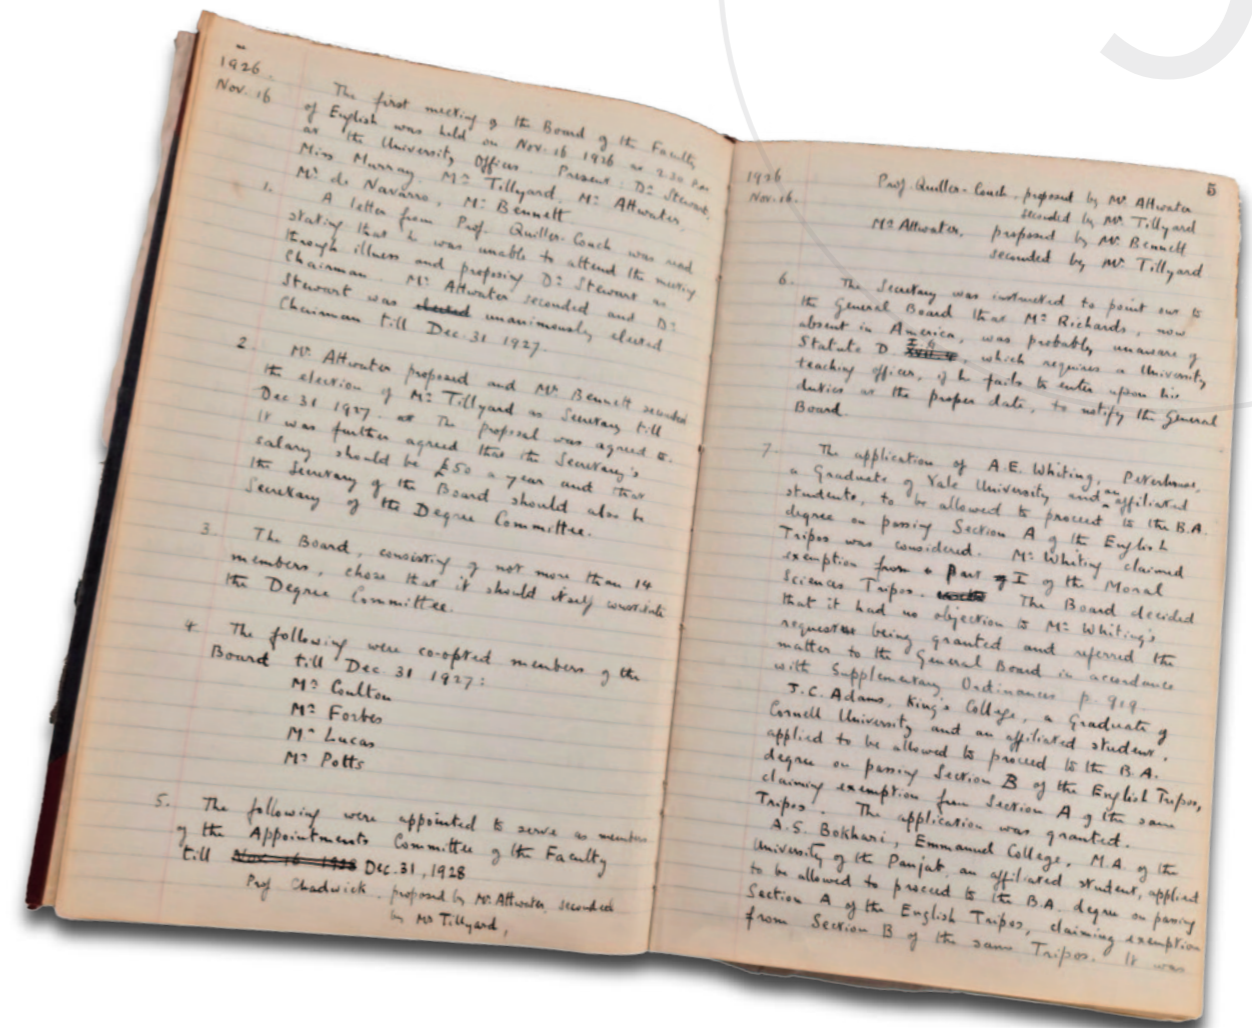 1926.
Nov. 16
The first meeting of the Board of the Faculty
of English was held on Nov. 16 1926 at 2.30 P.M.
at the University Offices. Present: Dr Stewart,
Miss Murray, Mr Tillyard, Mr Attwater,
Mr de Navarro, Mr Bennett.
1. A letter from Prof. Quiller-Couch was read
stating that he was unable to attend the meeting
through illness and proposing Dr Stewart as
Chairman. Mr Attwater seconded and Dr
Stewart was elected unanimously elected
Chairman till Dec. 31 1927.
2. Mr Attwater proposed and Mr Bennett seconded
the election of Mr Tillyard as Secretary till
Dec 31 1927. The proposal was agreed to.
It was further agreed that the Secretary's
salary should be £50 a year and that
the Secretary of the Board should also be
Secretary of the Degree Committee.
3. The Board, consisting of not more than 14
members, chose that it should itself constitute
the Degree Committee.
4. The following were co-opted members of the
Board till Dec. 31 1927:
Mr Coulton
Mr Forbes
Mr Lucas
Mr Potts
5. The following were appointed to serve as members
of the Appointments Committee of the Faculty
till Nov. 16 1928 Dec. 31, 1928
Prof Chadwick, proposed by Mr Attwater, seconded
by Mr Tillyard,
5
1926
Nov. 16.
Prof. Quiller-Couch, proposed by Mr Attwater
seconded by Mr Tillyard
Mr Attwater, proposed by Mr Bennett
seconded by Mr Tillyard
6. The Secretary was instructed to point out to
the General Board that Mr Richards, now
absent in America, was probably unaware of
Statute D I 6, which requires a University
teaching officer, if he fails to enter upon his
duties at the proper date, to notify the General
Board.
7. The application of A.E. Whiting, Peterhouse,
a Graduate of Yale University and an affiliated
students, to be allowed to proceed to the B.A.
degree on passing Section A of the English
Tripos was considered. Mr Whiting claimed
exemption from Part I of the Moral
Sciences Tripos. The Board decided
that it had no objection to Mr Whiting's
request being granted and referred the
matter to the General Board in accordance
with Supplementary Ordinances p. 919.
J.C. Adams, King's College, a Graduate of
Cornell University and an affiliated student,
applied to be allowed to proceed to the B.A.
degree on passing Section B of the English Tripos,
claiming exemption from Section A of the same
Tripos. The application was granted.
A.S. Bokhari, Emmanuel College, M.A. of the
University of the Panjab, an affiliated student, applied
to be allowed to proceed to the B.A. degree on passing
Section A of the English Tripos, claiming exemption
from Section B of the same Tripos. It was